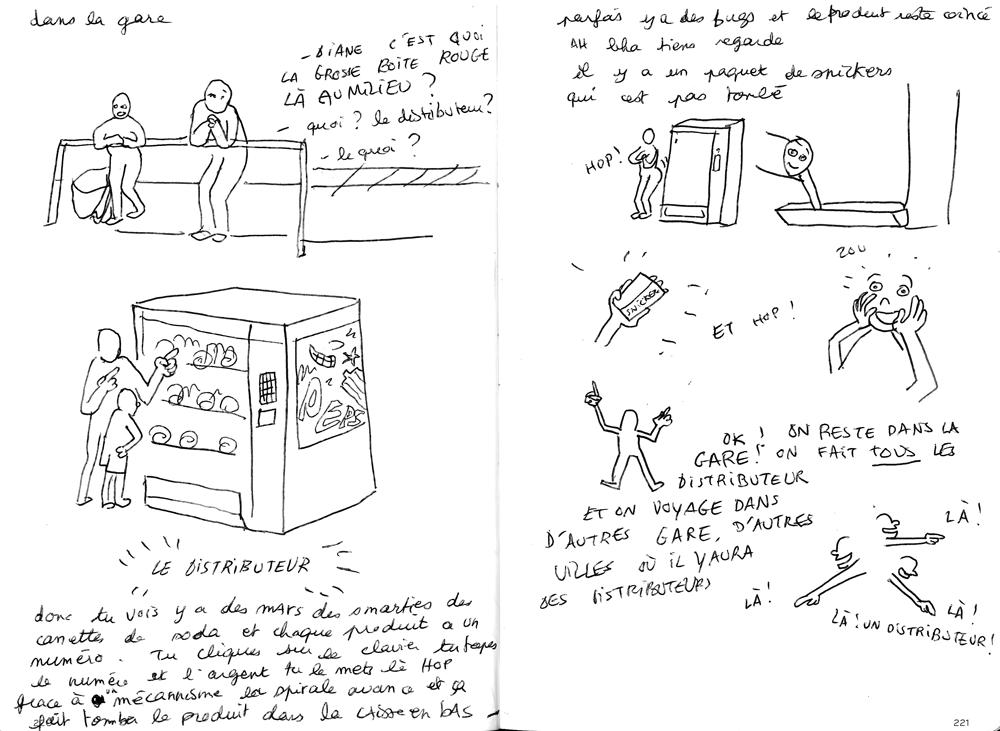 dans la gare
- DIANE C'EST QUOI
LA GROSSE BOITE ROUGE
LÀ AU MILIEU ?
- quoi ? le distributeur ?
- le quoi ?
EPS
LE DISTRIBUTEUR
donc tu vois y a des mars des smarties des
canettes de soda et chaque produit a un
numéro. Tu cliques sur le clavier tu tapes
le numéro et l'argent tu le mets là HOP
grace à un mécannisme la spirale avance et ça
fait tomber le produit dans la caisse en bAS
parfois y a des bugs et le produit reste coincé
AH bha tiens regarde
il y a un paquet de snickers
qui est pas tombé
HOP !
SNICKER
ET HOP !
ZOU
OK ! ON RESTE DANS LA
GARE ! ON FAIT TOUS LES
DISTRIBUTEUR
ET ON VOYAGE DANS
D'AUTRES GARE, D'AUTRES
VILLES OÙ IL Y AURA
DES DISTRIBUTEURS
LÀ !
LÀ !
LÀ !
LÀ ! UN DISTRIBUTEUR !
221